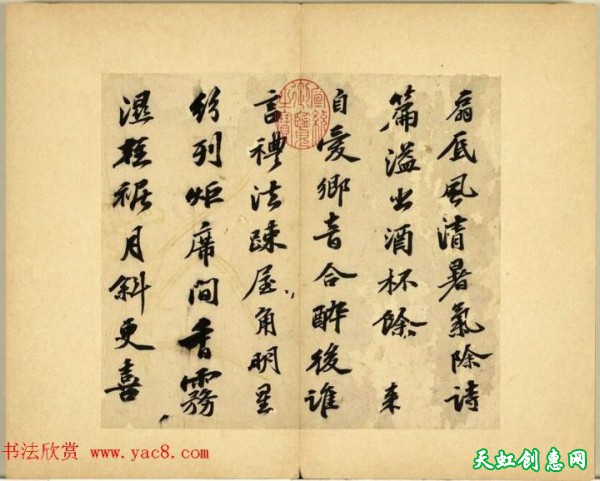 扇底風清暑氣除詩
篇溢出酒杯餘 来
自愛鄉音合醉後誰
言禮法疎屋角明星
紛列炬席間香霧
濕輕裾月斜更喜
宣統御覽之寶
书法欣赏 www.yac8.com
天虹创惠网